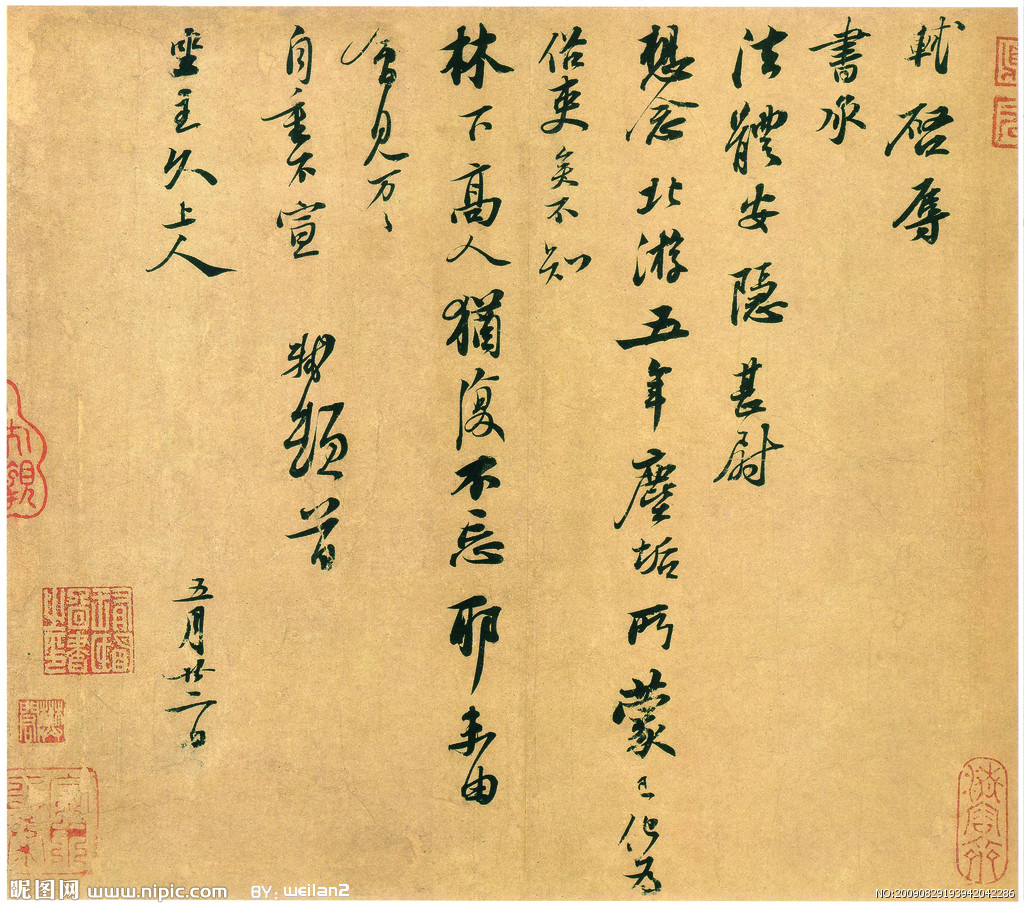 軾啓辱
書承
法體安隱甚尉
想念北游五年塵垢所蒙已化為
俗吏矣不知
林下高人猶復不忘耶未由
會見万〻
自重不宣 軾頓首
坐主久上人
五月廿二日
昵图网 www.nipic.com BY: weilan2
NO:20090829193942042286